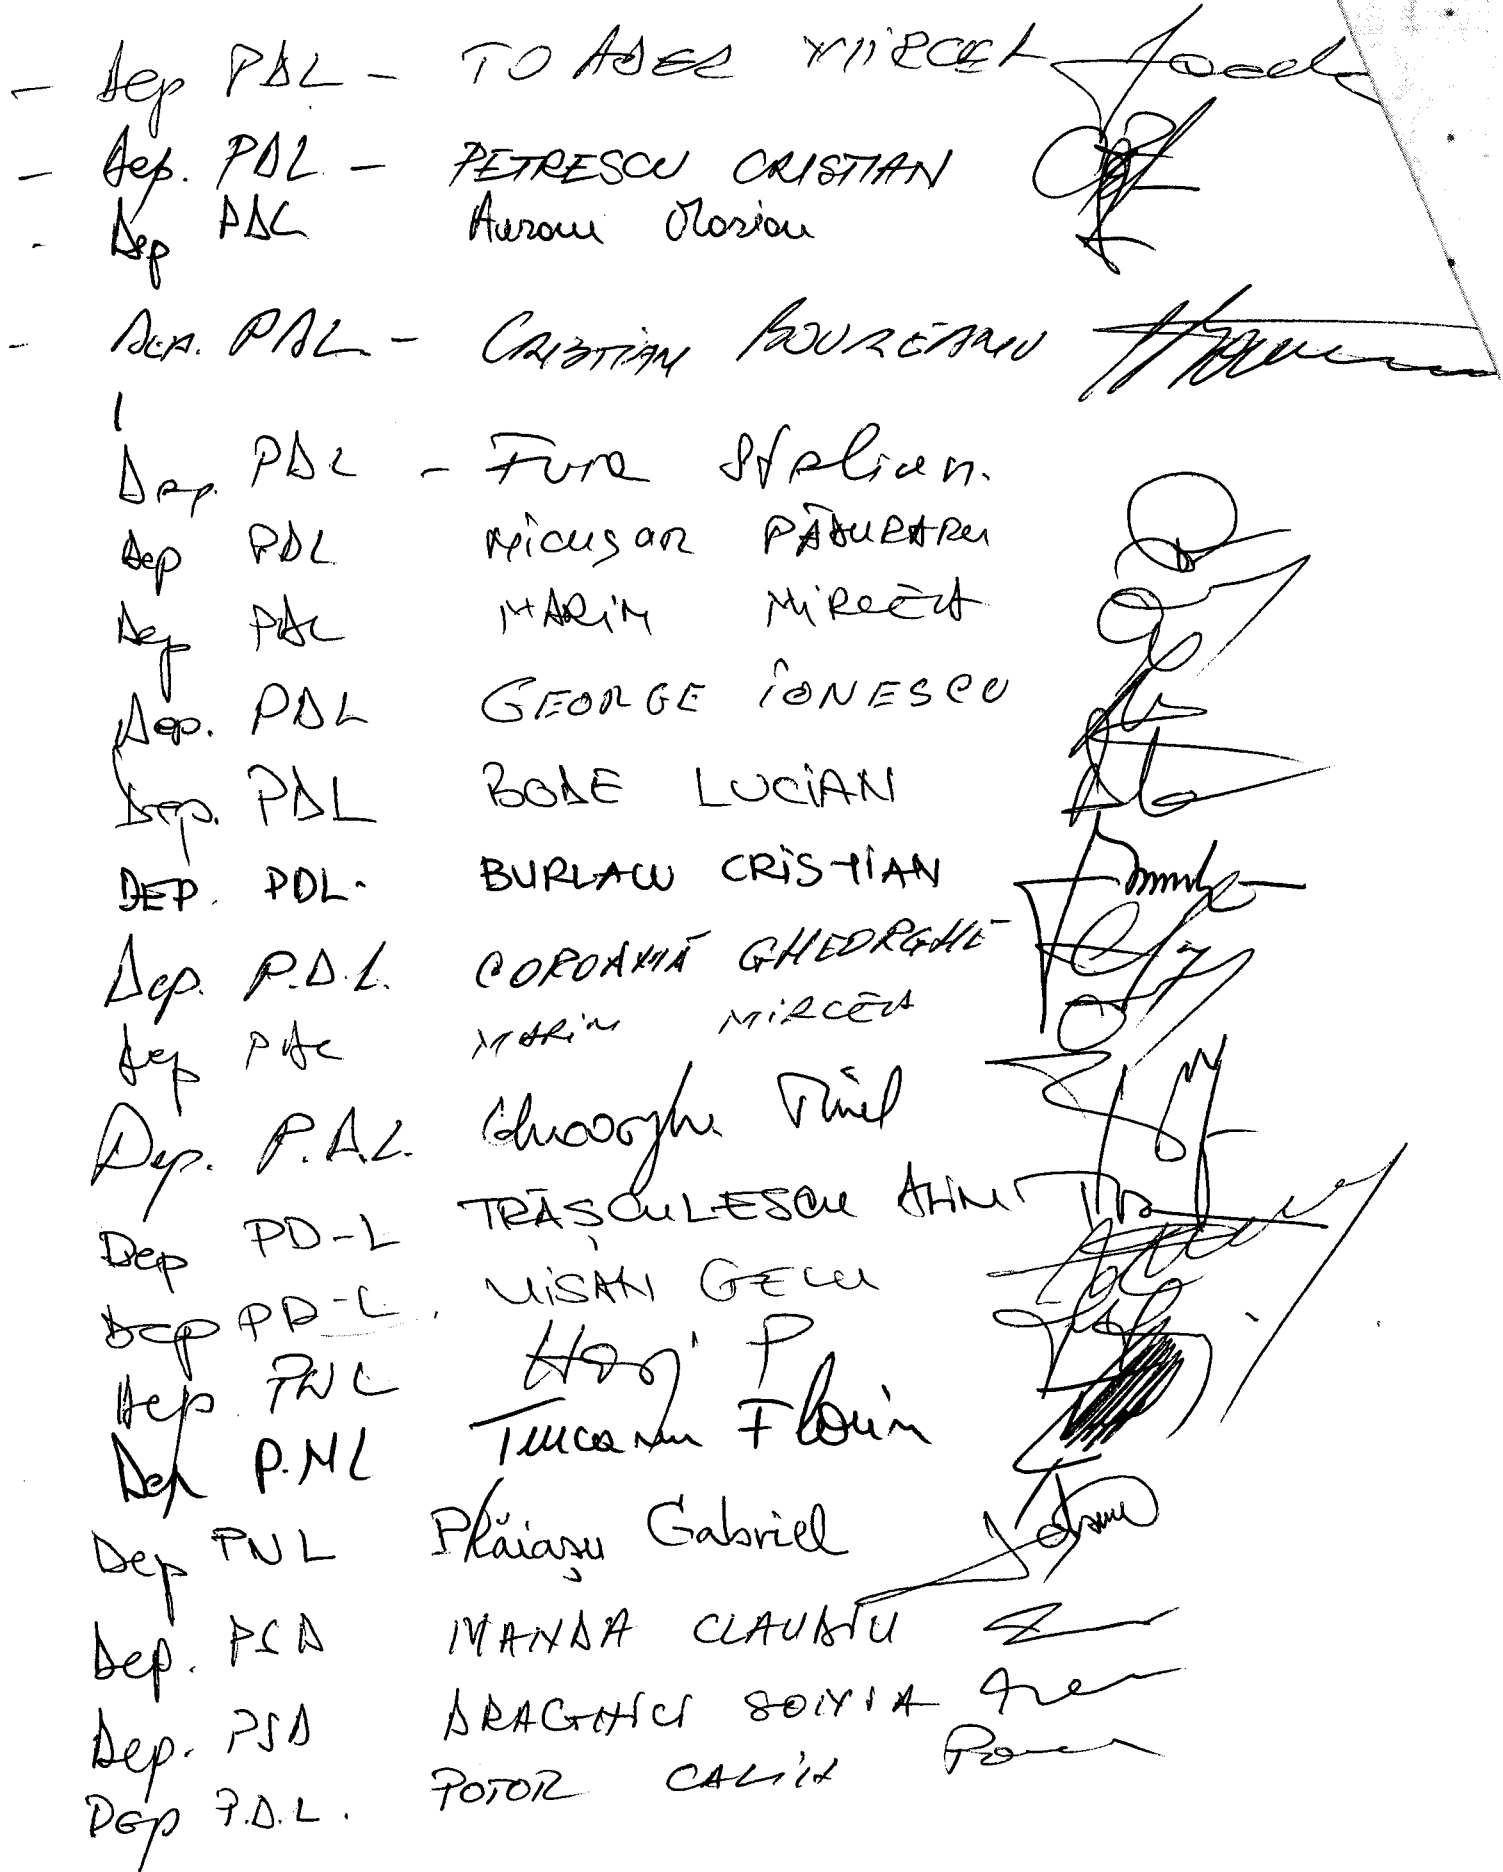 - Dep PDL - TOADER MIRCEA
- Dep. PDL - PETRESCU CRISTIAN
- Dep PDL
- Dep. PDL - CRISTIAN BOUREANU
Dep. PDL - Fuia Stelian.
Dep PDL Nicușor PĂDURARU
Dep PDL MARIN MIRCEA
Dep. PDL GEORGE IONESCU
Dep. PDL BODE LUCIAN
DEP. PDL. BURLACU CRISTIAN
Dep. P.D.L. COROAMĂ GHEORGHE
Dep PDL MARIN MIRCEA
Dep. P.D.L. Gheorghe Tinel
Dep PD-L TRĂȘCULESCU ALIN
Dep PD-L. VIȘAN GELU
Dep PNL
Dep P.NL Țurcanu Florin
Dep PNL Plăiașu Gabriel
Dep. PSD MANDA CLAUDIU
Dep. PSD DRAGHICI SONIA
DEP P.D.L. POTOR CALIN